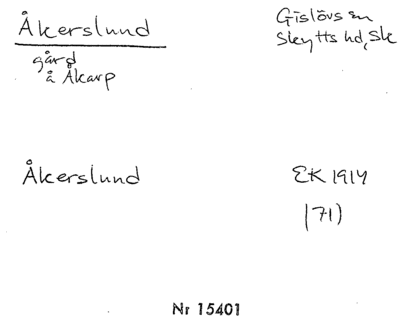 Åkerslund
gård
å Åkarp
Gislövs sn
Skytts hd, Sk
Åkerslund
EK 1914
(71)
Nr 15401